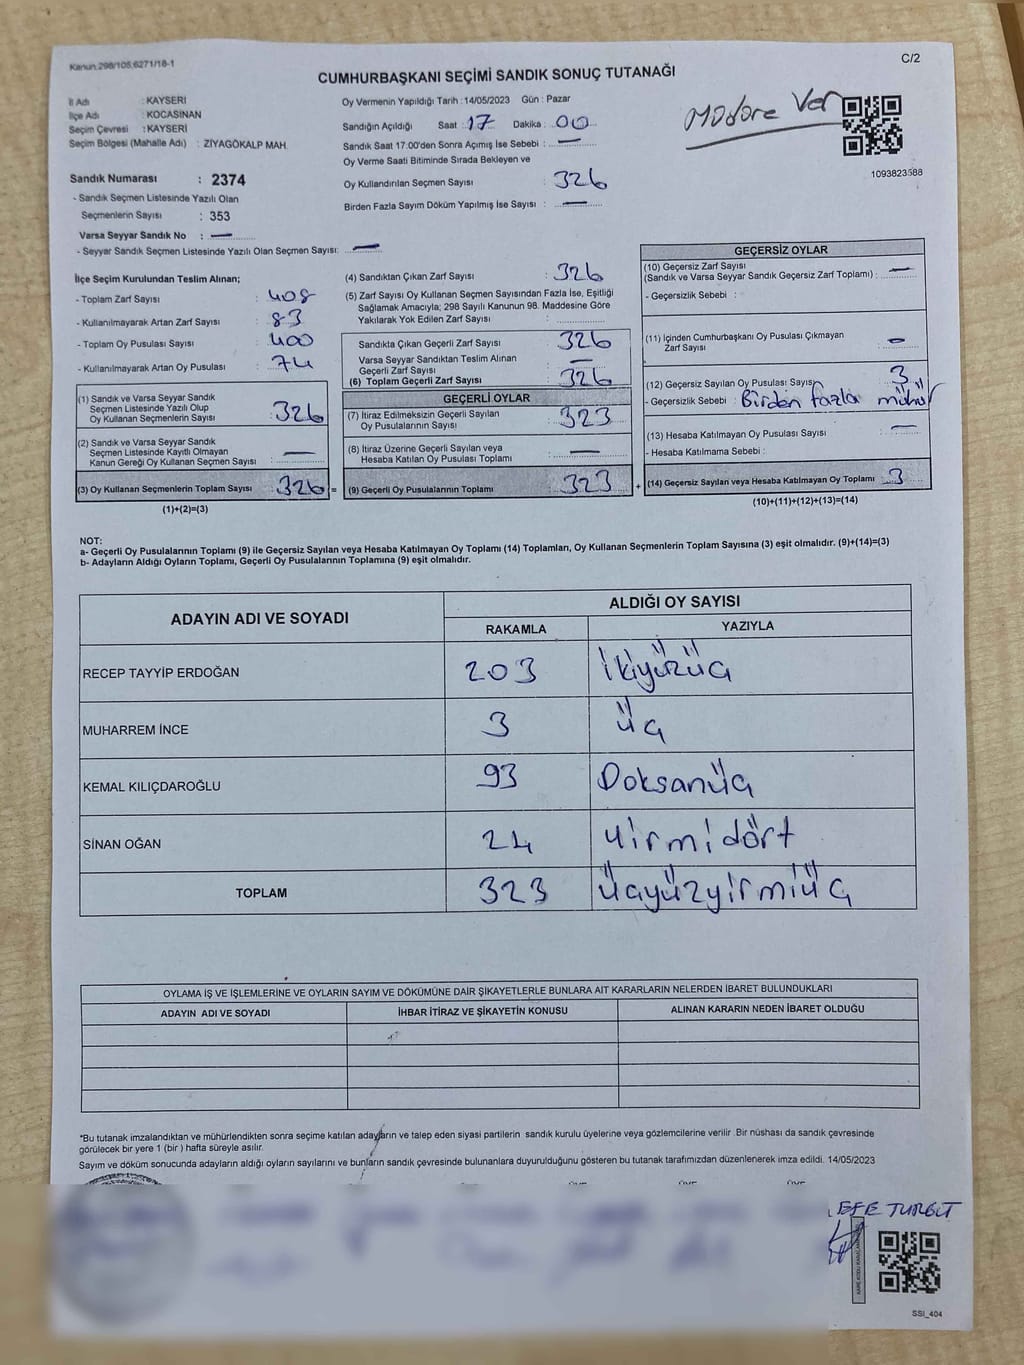 Kanun:298/105,6271/18-1
C/2
CUMHURBAŞKANI SEÇİMİ SANDIK SONUÇ TUTANAĞI
İl Adı : KAYSERİ
İlçe Adı : KOCASİNAN
Seçim Çevresi : KAYSERİ
Seçim Bölgesi (Mahalle Adı) : ZİYAGÖKALP MAH.
Sandık Numarası : 2374
- Sandık Seçmen Listesinde Yazılı Olan
Seçmenlerin Sayısı : 353
Varsa Seyyar Sandık No : —
- Seyyar Sandık Seçmen Listesinde Yazılı Olan Seçmen Sayısı: —
Oy Vermenin Yapıldığı Tarih :14/05/2023 Gün : Pazar
Sandığın Açıldığı Saat : 17 Dakika : 00
Sandık Saat 17.00'den Sonra Açımış İse Sebebi : —
Oy Verme Saati Bitiminde Sırada Bekleyen ve
Oy Kullandırılan Seçmen Sayısı : 326
Birden Fazla Sayım Döküm Yapılmış İse Sayısı : —
1093823588
İlçe Seçim Kurulundan Teslim Alınan;
- Toplam Zarf Sayısı : 408
- Kullanılmayarak Artan Zarf Sayısı : 83
- Toplam Oy Pusulası Sayısı : 400
- Kullanılmayarak Artan Oy Pusulası : 74
(1) Sandık ve Varsa Seyyar Sandık
Seçmen Listesinde Yazılı Olup
Oy Kullanan Seçmenlerin Sayısı : 326
(2) Sandık ve Varsa Seyyar Sandık
Seçmen Listesinde Kayıtlı Olmayan
Kanun Gereği Oy Kullanan Seçmen Sayısı : —
(3) Oy Kullanan Seçmenlerin Toplam Sayısı : 326 =
(1)+(2)=(3)
(4) Sandıktan Çıkan Zarf Sayısı : 326
(5) Zarf Sayısı Oy Kullanan Seçmen Sayısından Fazla İse, Eşitliği
Sağlamak Amacıyla; 298 Sayılı Kanunun 98. Maddesine Göre
Yakılarak Yok Edilen Zarf Sayısı :
Sandıkta Çıkan Geçerli Zarf Sayısı : 326
Varsa Seyyar Sandıktan Teslim Alınan
Geçerli Zarf Sayısı : —
(6) Toplam Geçerli Zarf Sayısı : 326
GEÇERLİ OYLAR
(7) İtiraz Edilmeksizin Geçerli Sayılan
Oy Pusulalarının Sayısı : 323
(8) İtiraz Üzerine Geçerli Sayılan veya
Hesaba Katılan Oy Pusulası Toplamı : —
(9) Geçerli Oy Pusulalarının Toplamı : 323 +
GEÇERSİZ OYLAR
(10) Geçersiz Zarf Sayısı
(Sandık ve Varsa Seyyar Sandık Geçersiz Zarf Toplamı) : —
- Geçersizlik Sebebi :
(11) İçinden Cumhurbaşkanı Oy Pusulası Çıkmayan
Zarf Sayısı :
(12) Geçersiz Sayılan Oy Pusulası Sayısı : 3
- Geçersizlik Sebebi : Birden fazla mühür
(13) Hesaba Katılmayan Oy Pusulası Sayısı : —
- Hesaba Katılmama Sebebi :
(14) Geçersiz Sayılan veya Hesaba Katılmayan Oy Toplamı : 3
(10)+(11)+(12)+(13)=(14)
NOT:
a- Geçerli Oy Pusulalarının Toplamı (9) ile Geçersiz Sayılan veya Hesaba Katılmayan Oy Toplamı (14) Toplamları, Oy Kullanan Seçmenlerin Toplam Sayısına (3) eşit olmalıdır. (9)+(14)=(3)
b- Adayların Aldığı Oyların Toplamı, Geçerli Oy Pusulalarının Toplamına (9) eşit olmalıdır.
ADAYIN ADI VE SOYADI ALDIĞI OY SAYISI
RAKAMLA YAZIYLA
RECEP TAYYİP ERDOĞAN 203 İkiyüzüç
MUHARREM İNCE 3 üç
KEMAL KILIÇDAROĞLU 93 Doksanüç
SİNAN OĞAN 24 yirmidört
TOPLAM 323 üçyüzyirmiüç
OYLAMA İŞ VE İŞLEMLERİNE VE OYLARIN SAYIM VE DÖKÜMÜNE DAİR ŞİKAYETLERLE BUNLARA AİT KARARLARIN NELERDEN İBARET BULUNDUKLARI
ADAYIN ADI VE SOYADI İHBAR İTİRAZ VE ŞİKAYETİN KONUSU ALINAN KARARIN NEDEN İBARET OLDUĞU
*Bu tutanak imzalandıktan ve mühürlendikten sonra seçime katılan adayların ve talep eden siyasi partilerin sandık kurulu üyelerine veya gözlemcilerine verilir .Bir nüshası da sandık çevresinde
görülecek bir yere 1 (bir ) hafta süreyle asılır.
Sayım ve döküm sonucunda adayların aldığı oyların sayılarını ve bunların sandık çevresinde bulunanlara duyurulduğunu gösteren bu tutanak tarafımızdan düzenlenerek imza edildi. 14/05/2023
EFE TURGUT
SSI_404